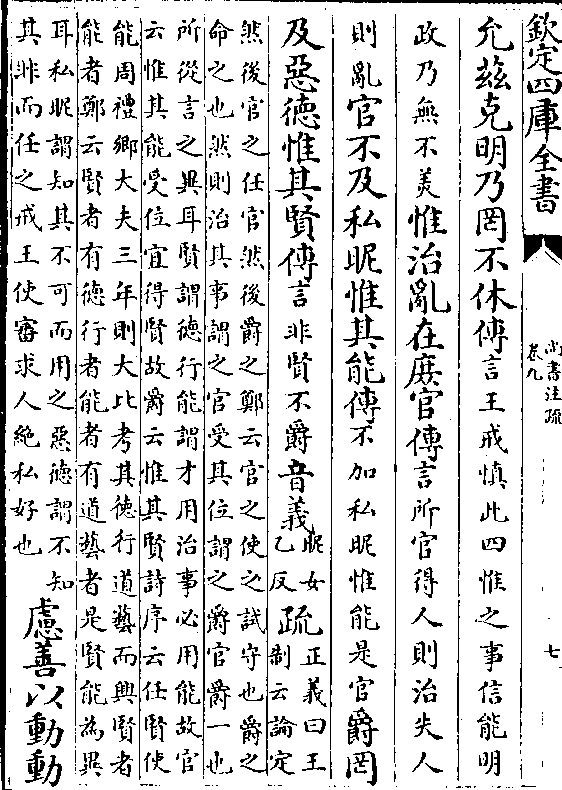 欽定四庫全書
尚書注疏
卷九
七
允茲克明乃罔不休傳言王戒慎此四惟之事信能明
政乃無不美惟治亂在庶官傳言所官得人則治失人
則亂官不及私昵惟其能傳不加私昵惟能是官爵罔
及惡德惟其賢傳言非賢不爵音義昵女乙反疏正義曰王制云論定
然後官之任官然後爵之鄭云官之使之試守也爵之
命之也然則治其事謂之官受其位謂之爵官爵一也
所從言之異耳賢謂德行能謂才用治事必用能故官
云惟其能受位宜得賢故爵云惟其賢詩序云任賢使
能周禮鄉大夫三年則大比考其德行道藝而興賢者
能者鄭云賢者有德行者能者有道藝者是賢能為異
耳私昵謂知其不可而用之惡德謂不知
其非而任之戒王使審求人絕私好也
慮善以動動